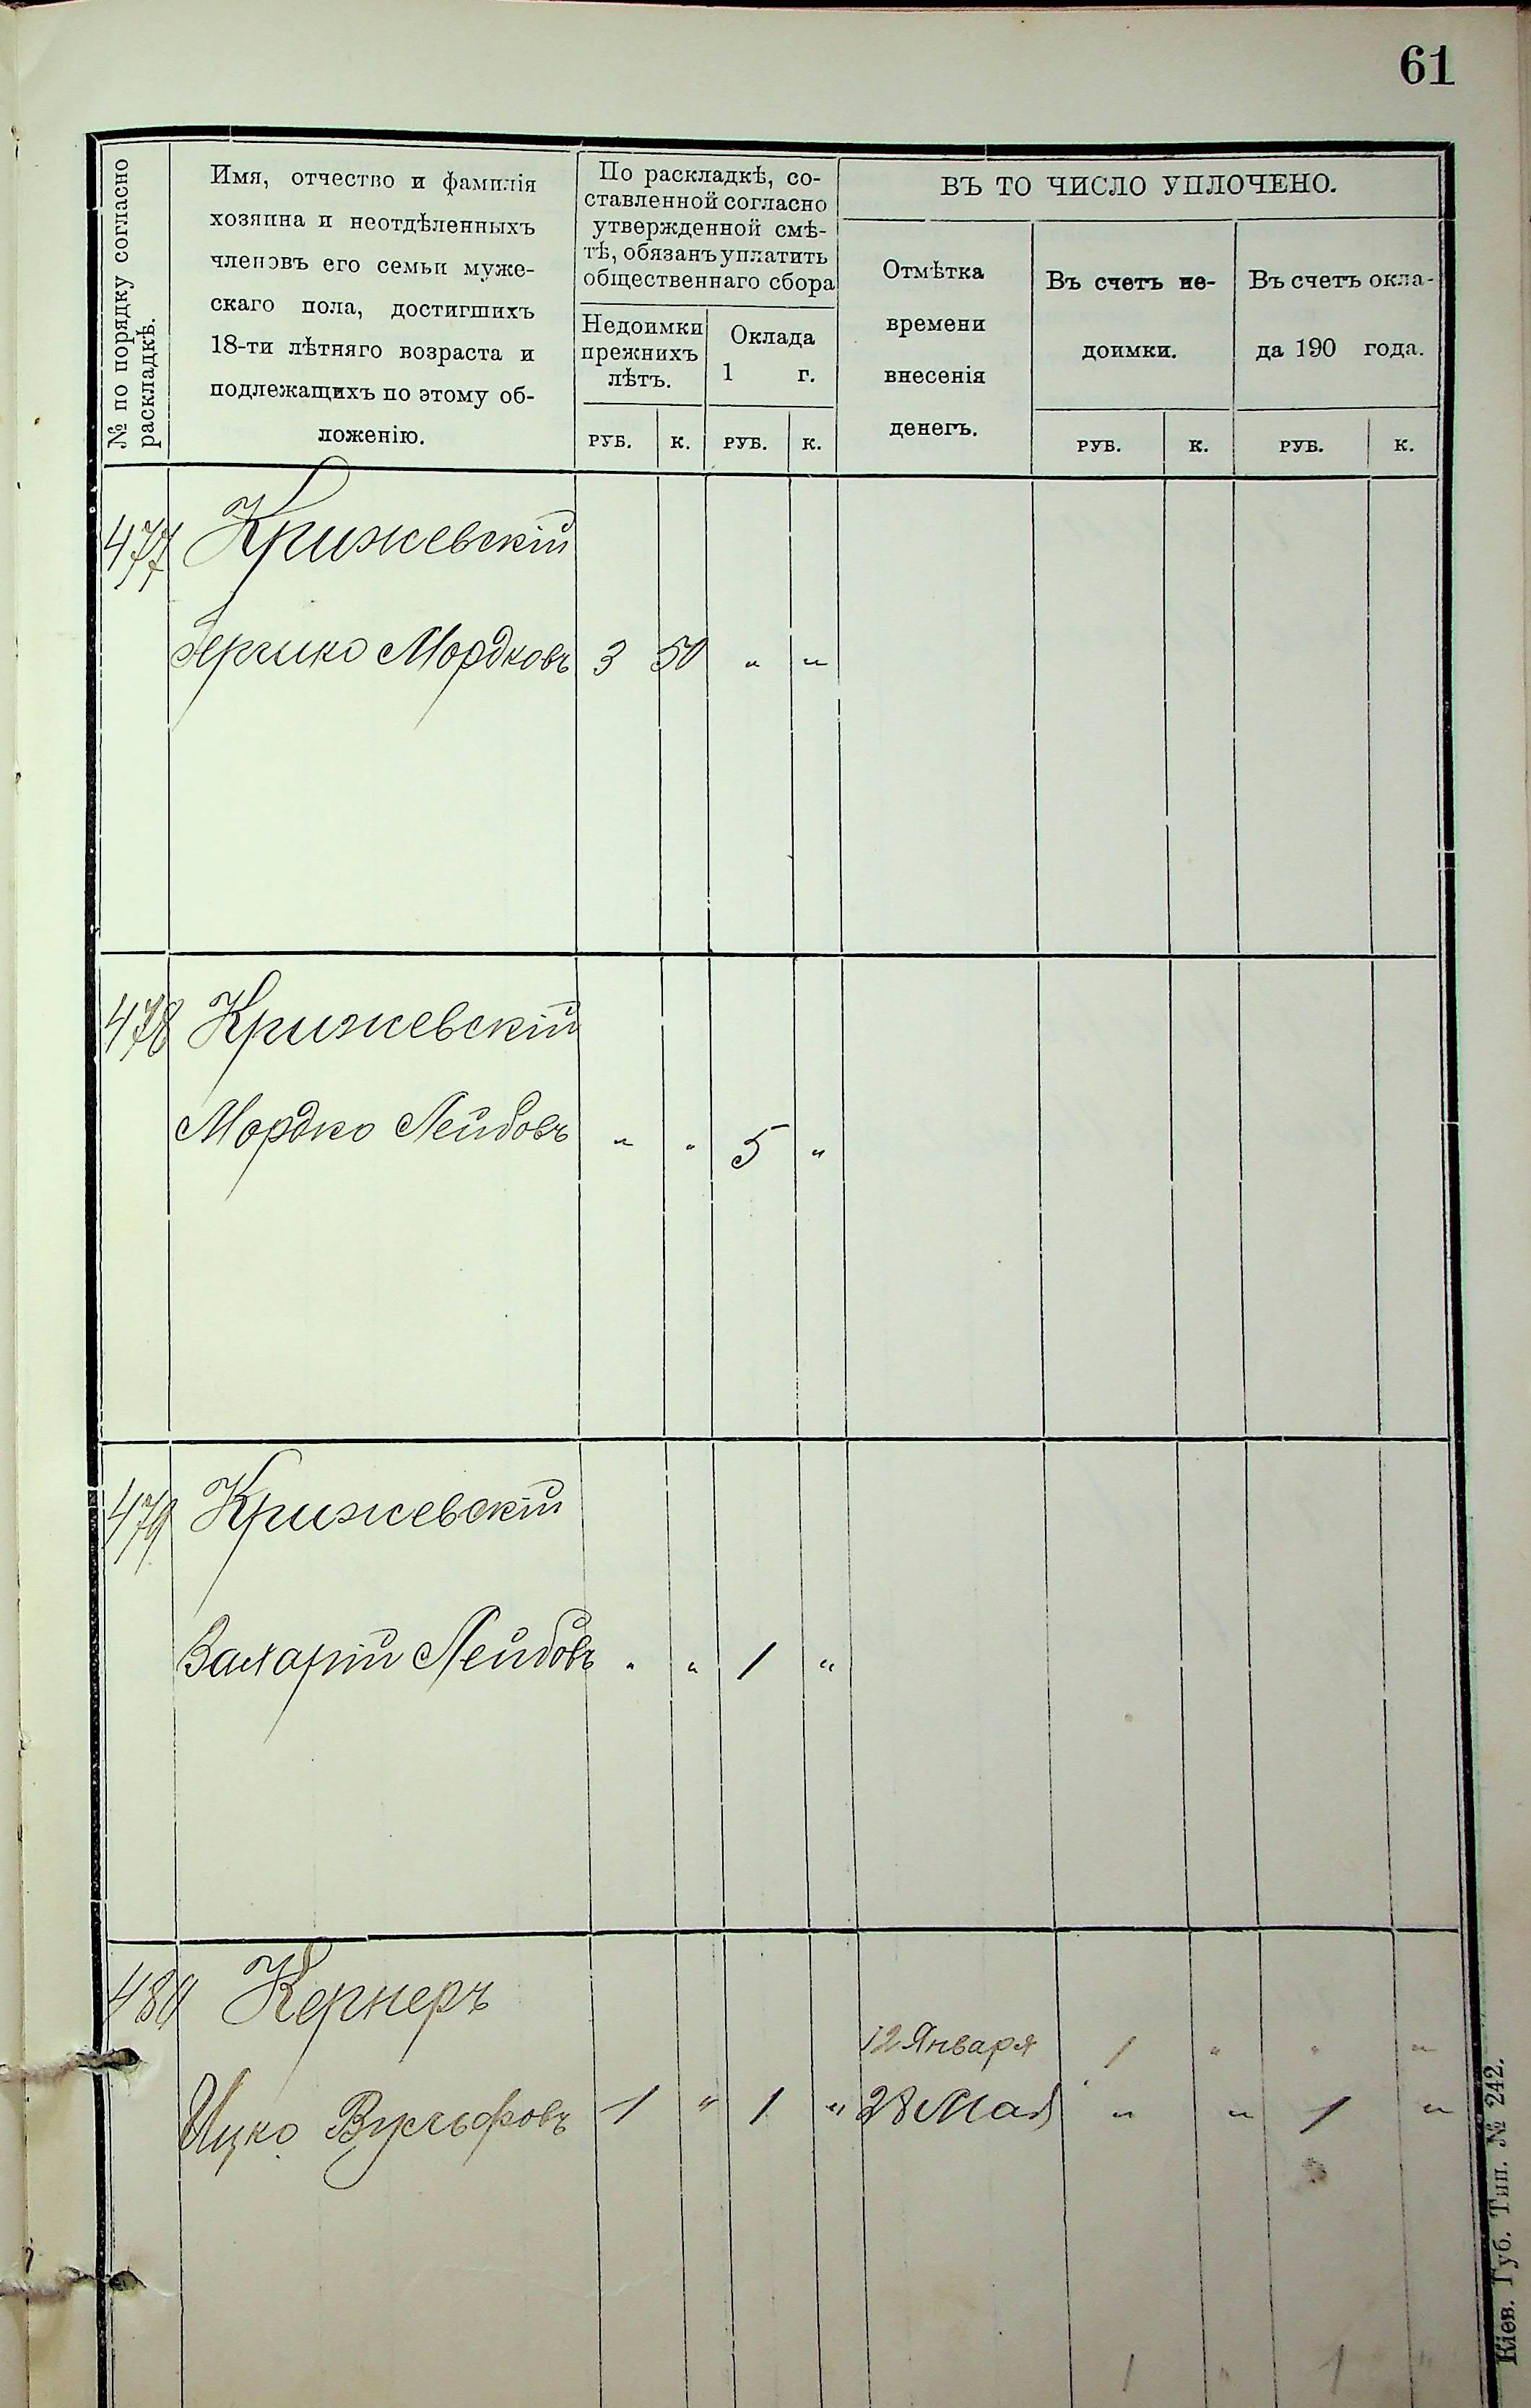 61
№ по порядку согласно
раскладкѣ.
Имя, отчество и фамилія
хозяина и неотдѣленныхъ
членовъ его семьи муже-
скаго пола, достигшихъ
18-ти лѣтняго возраста и
подлежащихъ по этому об-
ложенію.
По раскладкѣ, со-
ставленной согласно
утвержденной смѣ-
тѣ, обязанъ уплатить
общественнаго сбора
Недоимки
прежнихъ
лѣтъ.
Оклада
1 г.
РУБ. К. РУБ. К.
ВЪ ТО ЧИСЛО УПЛОЧЕНО.
Отмѣтка
времени
внесенія
денегъ.
Въ счетъ не-
доимки.
Въ счетъ окла-
да 190 года.
РУБ. К. РУБ. К.
477 Крижевскій
Мордковъ 3 50 " "
478 Крижевскій
Мордко Лейбовъ " " 5 "
479 Крижевскій
Захарій Лейбовъ " " 1 "
480 Кернеръ
12 Января 1 " " "
Ицко Вульфовъ 1 " 1 " 28 Мая " " 1 "
1 " 1 "
Кіев. Губ. Тип. № 242.